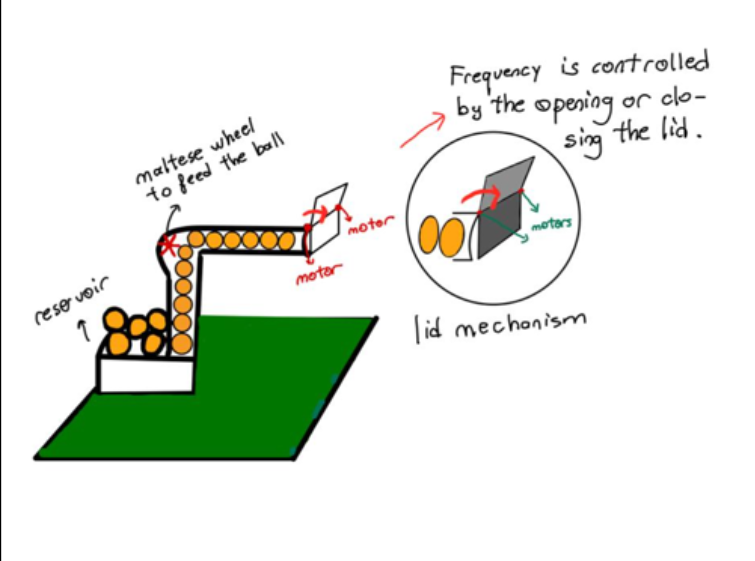 Frequency is controlled
by the opening or clo-
sing the lid.
maltese wheel
to feed the ball
motor
motors
motor
reservoir
lid mechanism